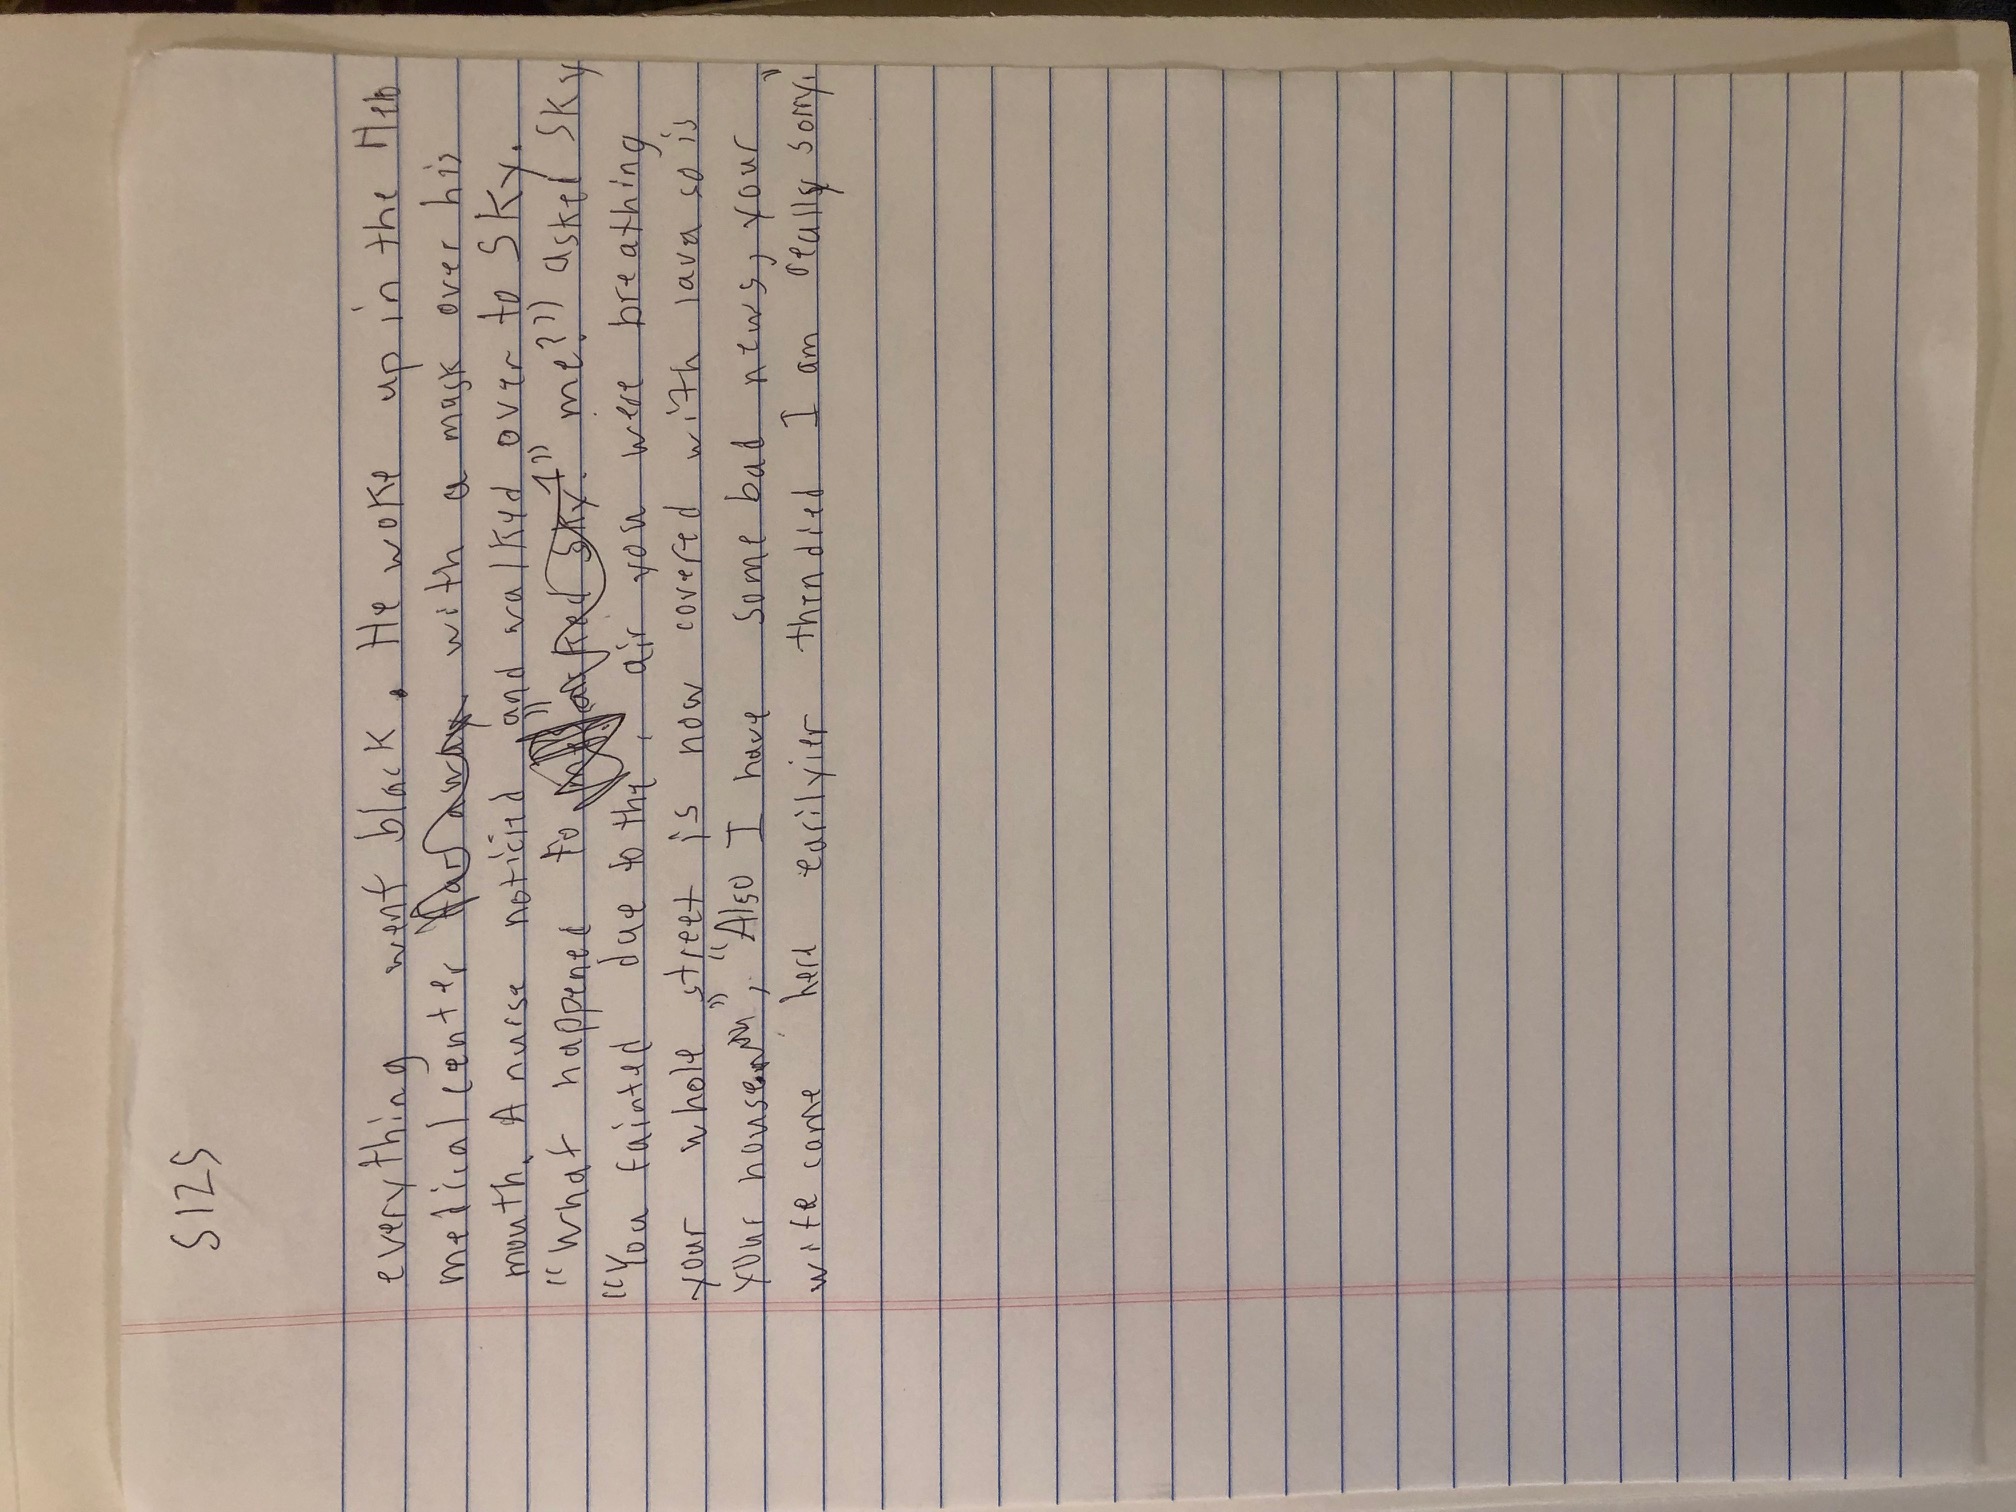 S125
everything went black. He woke up in the Helo
medical center far away with a mask over his
mouth. A nurse noticied and walked over to Sky.
"What happened to asked Sky?" me?" asked Sky
"You fainted due to the, air you were breathing
your whole street is now covered with lava so is
your house", "Also I have some bad news, your
wife came here earilyier then died I am really sorry."